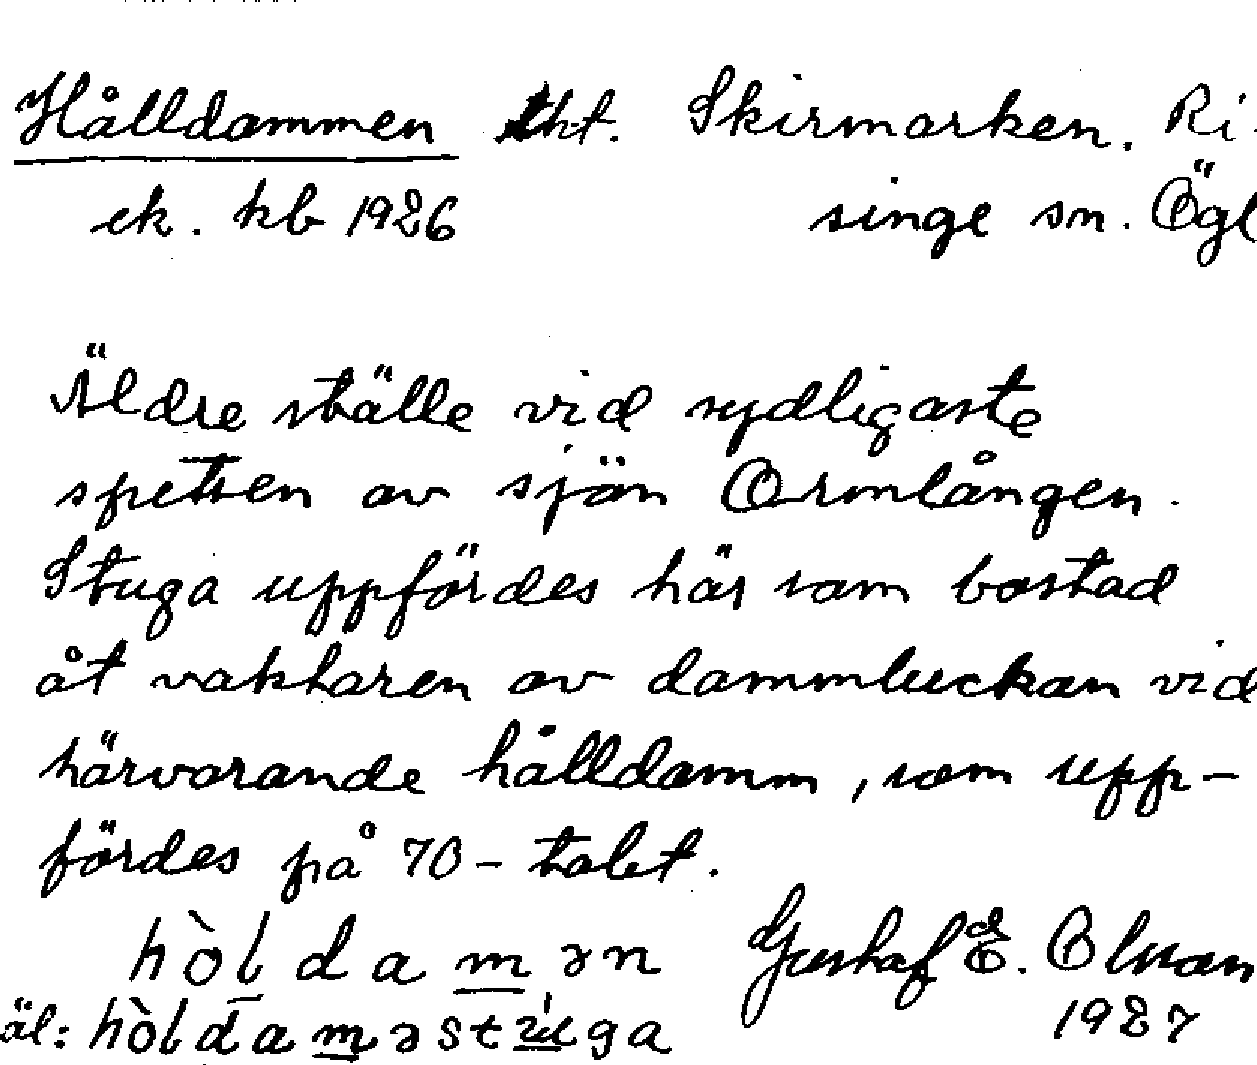 Hålldammen tht. Skirmarken. Ri-
ek. kb 1926 singe sn. Ögl
Äldre ställe vid sydligaste
spetsen av sjön Ormlången.
Stuga uppfördes här som bostad
åt vaktaren av dammluckan vid
härvarande hålldamm, som upp-
fördes på 70-talet.
hòldamən Gustaf E. Olsson
äl: hòldaməstúga 1927